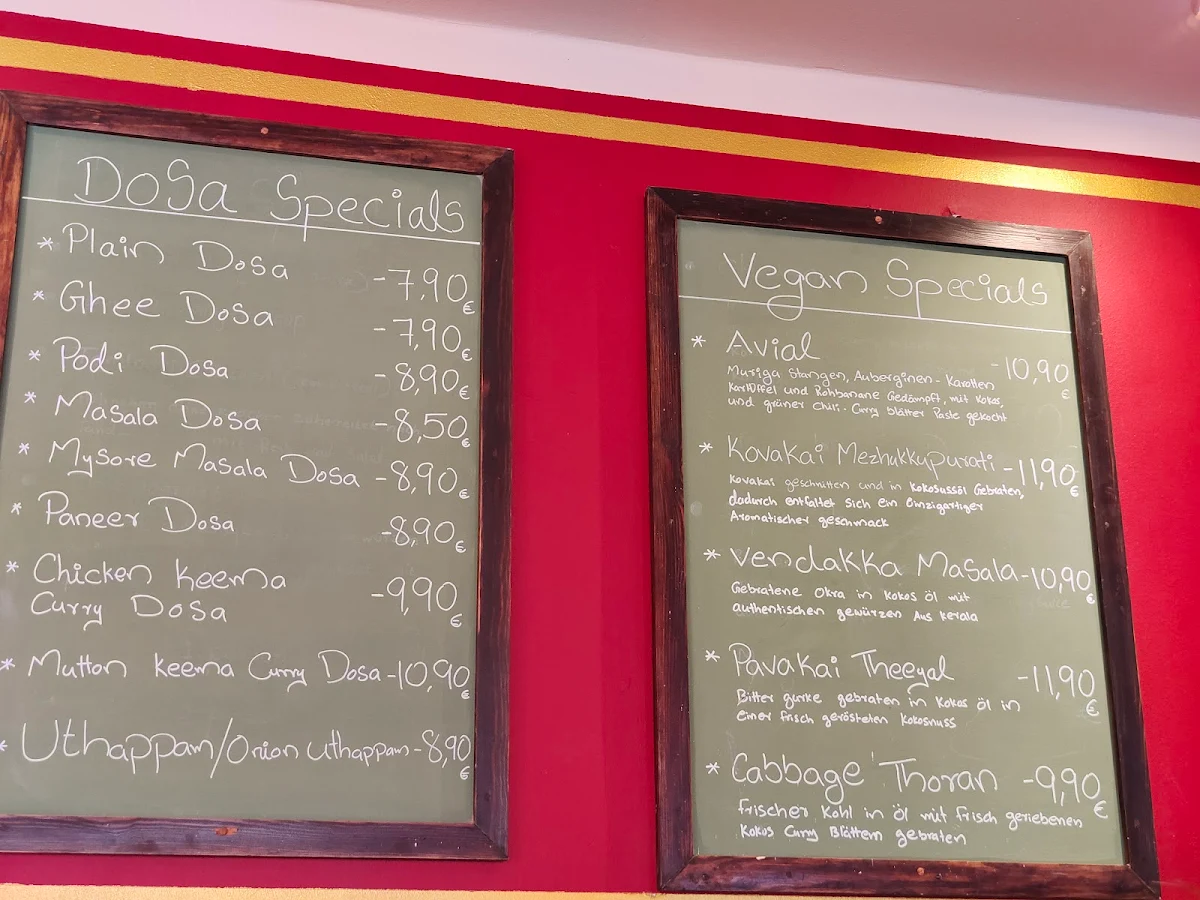 DoSa Specials
* Plain Dosa -7,90 €
* Ghee Dosa -7,90 €
* Podi Dosa -8,90 €
* Masala Dosa -8,50 €
* Mysore Masala Dosa -8,90 €
* Paneer Dosa -8,90 €
* Chicken Keema
Curry Dosa -9,90 €
* Mutton Keema Curry Dosa -10,90 €
* Uthappam/Onion Uthappam -8,90 €
Vegan Specials
* Avial -10,90 €
Muriga Stangen, Auberginen - Karotten
Kartöffel und Rohbanane Gedämpft, mit Kokos,
und grüner Chili - Curry blätter Paste gekocht
* Kovakai Mezhukkupurati -11,90 €
Kovakai geschnitten und in Kokosussöl Gebraten,
dadurch entfaltet sich ein Einzigartiger
Aromatischer geschmack
* Vendakka Masala -10,90 €
Gebratene Okra in Kokos öl mit
authentischen gewürzen Aus Kerala
* Pavakai Theeyal -11,90 €
Bitter gurke gebraten in Kokos öl in
einer frisch gerösteten Kokosnuss
* Cabbage Thoran -9,90 €
frischer Kohl in Öl mit frisch geriebenen
Kokos Curry Blättern gebraten